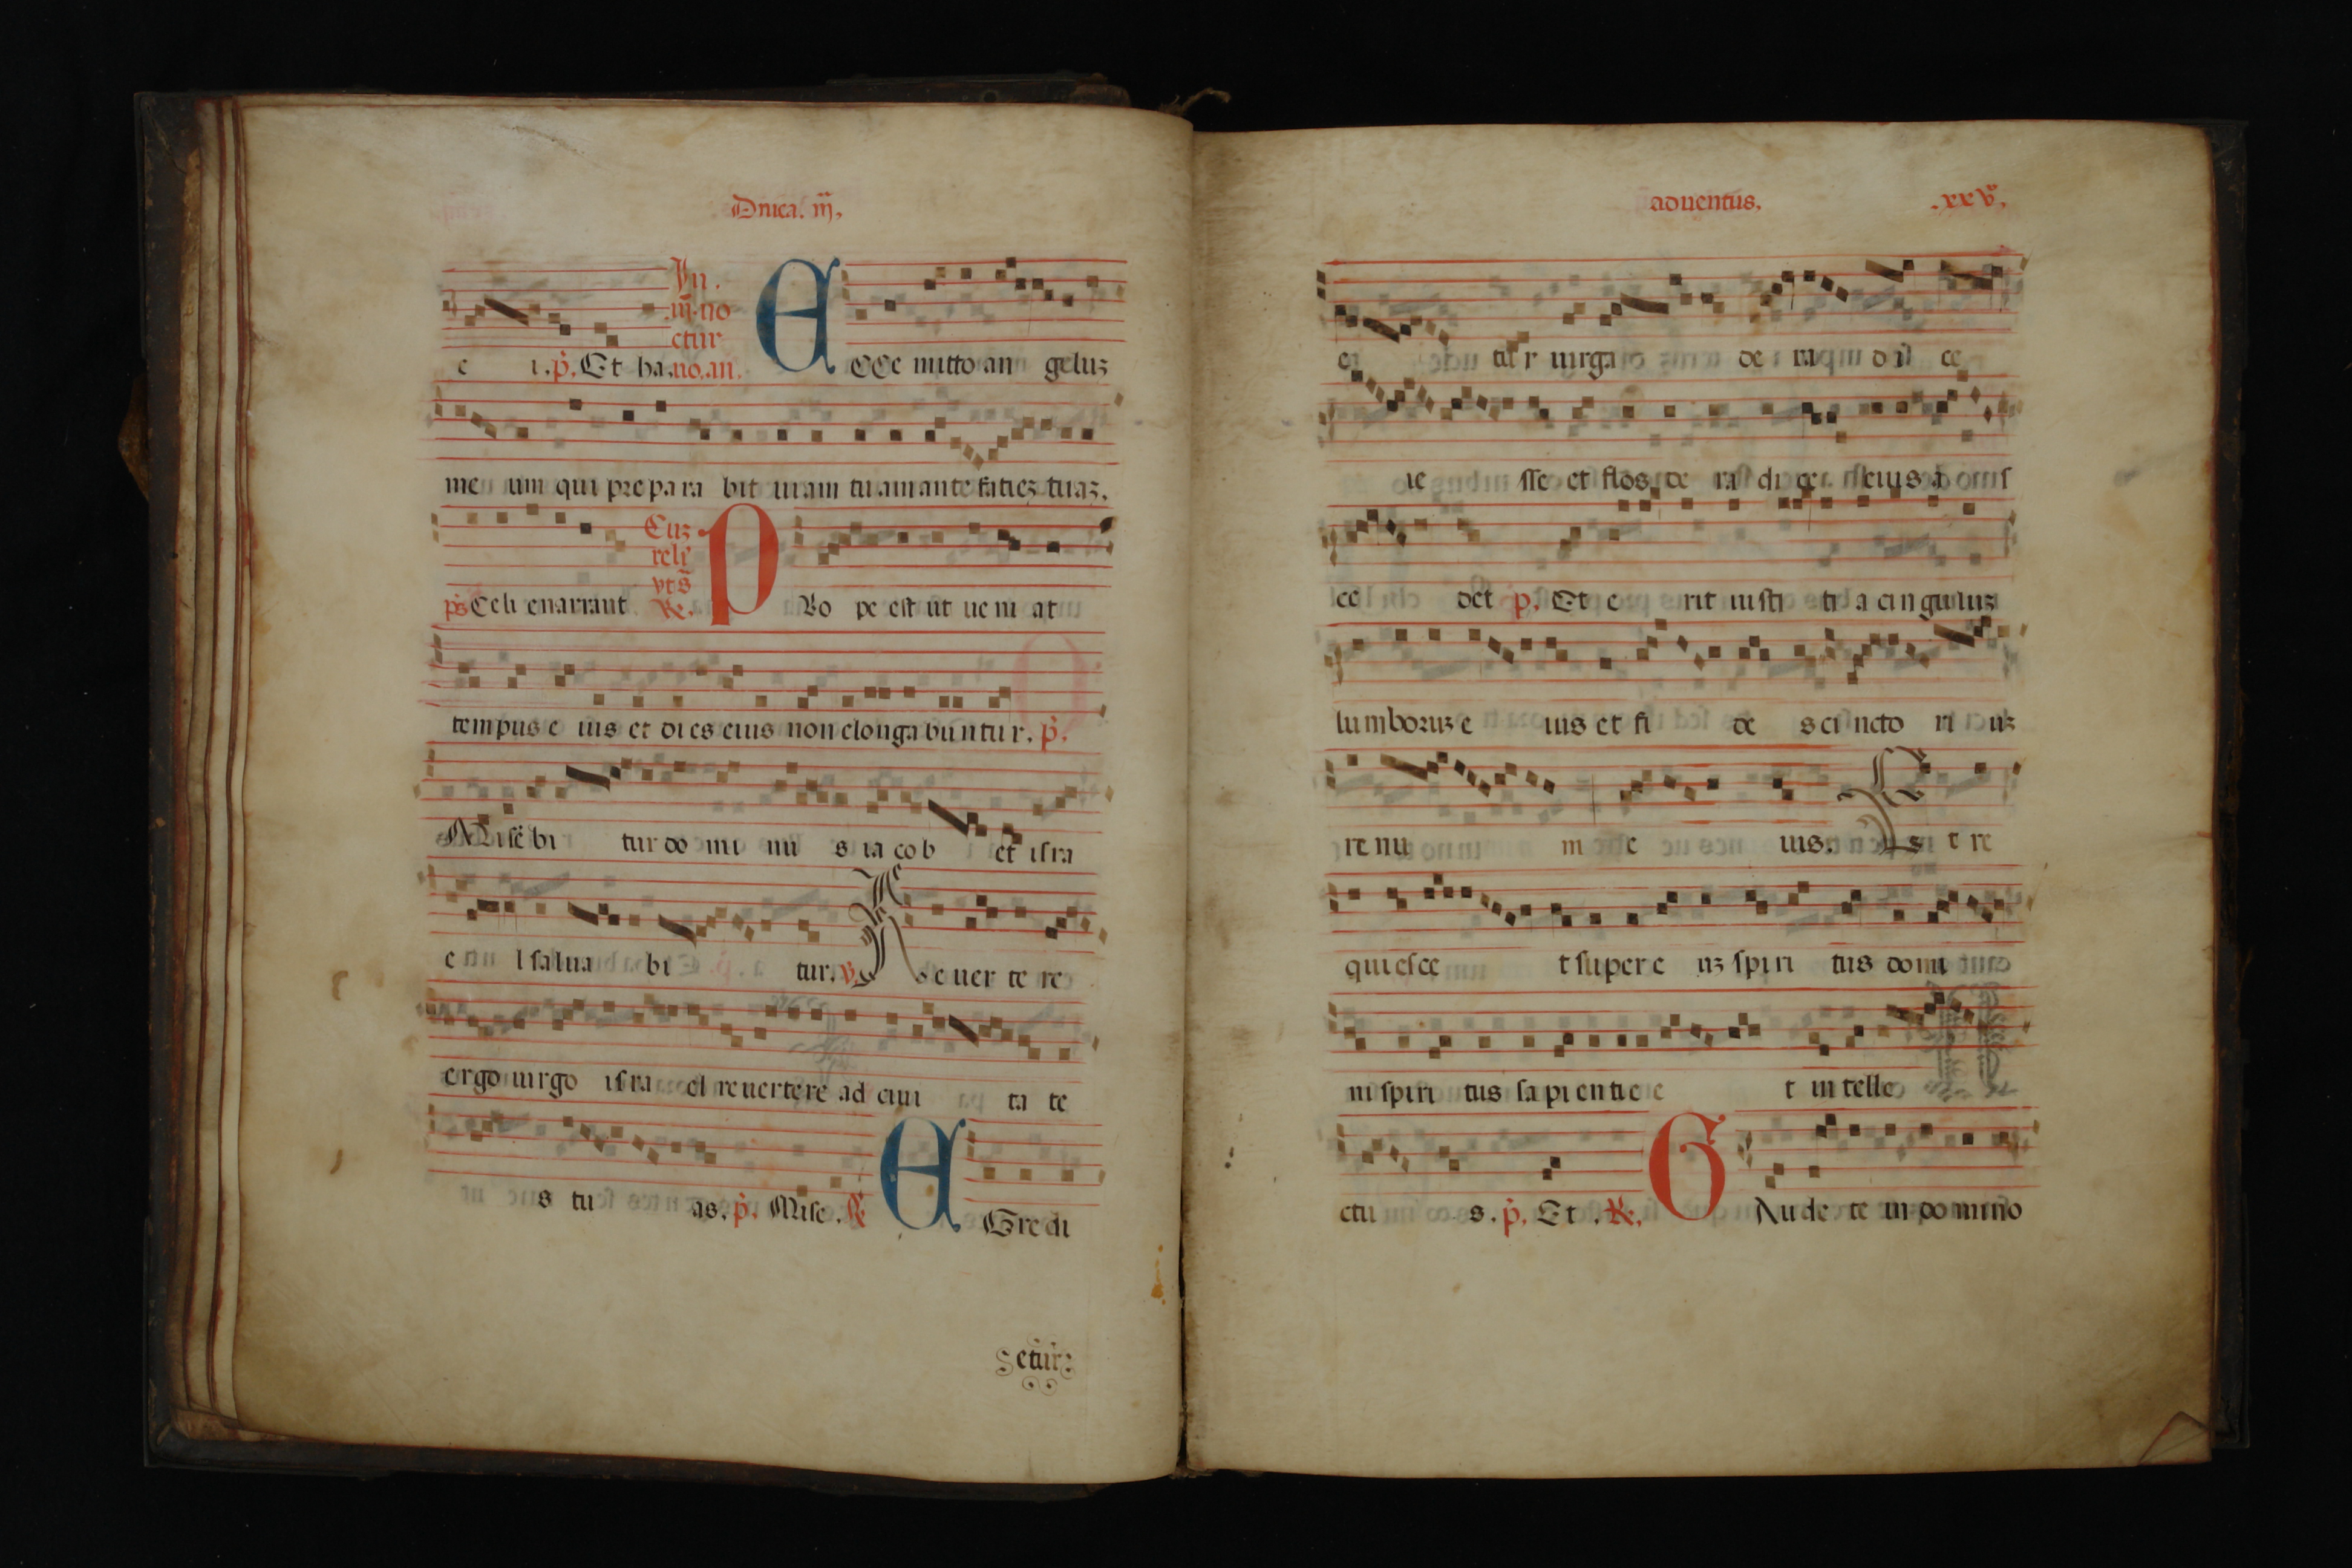 Dnica. iij,
In.
iij. no
ctur
e i. p. Et ha. no. an. E CCe mitto an geluz
me um qui prepara bit uiam tuam ante faciez tuaz.
Cuz
reliq
vts
ps Celi enarrant Re. P Ro pe est ut ueni at
tempus e ius et dies eius non elongabuntur. p.
Mise bi tur do mi nu s ia cob et isra
e l salua bi tur. v. Reuer te re
ergo uirgo isra el reuertere ad ciui ta te
s tu as. p. Mise. R E Gredi
etur
aduentus, .xxv,
e tur uirga de ra di ce
ie sse et flos de ra di ce eius a s
ce det p. Et e rit iusti ti a cinguluz
lumboruz e ius et fi de s cincto ri uz
re nu m e ius. Et re
quiesce t super e uz spiri tus domi
ni spiri tus sapientie e t intelle
ctu s. p. Et . Re. G Aude te in domino